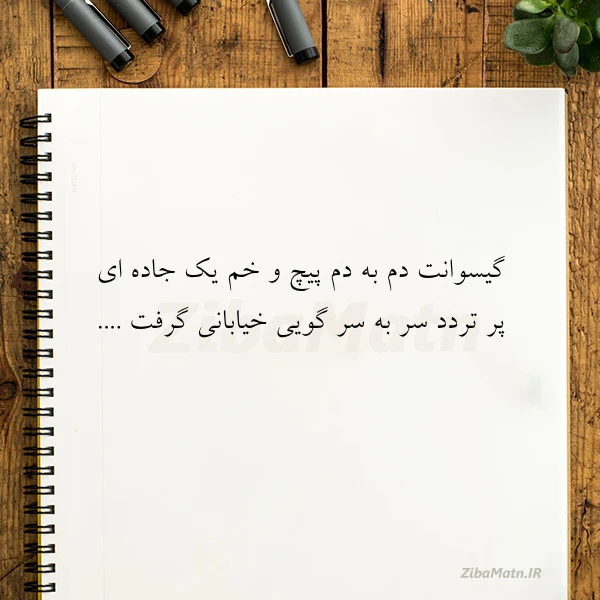 گیسوانت دم به دم پیچ و خم یک جاده ای
پر تردد سر به سر گویی خیابانی گرفت ....
ZibaMatn
ZibaMatn.IR